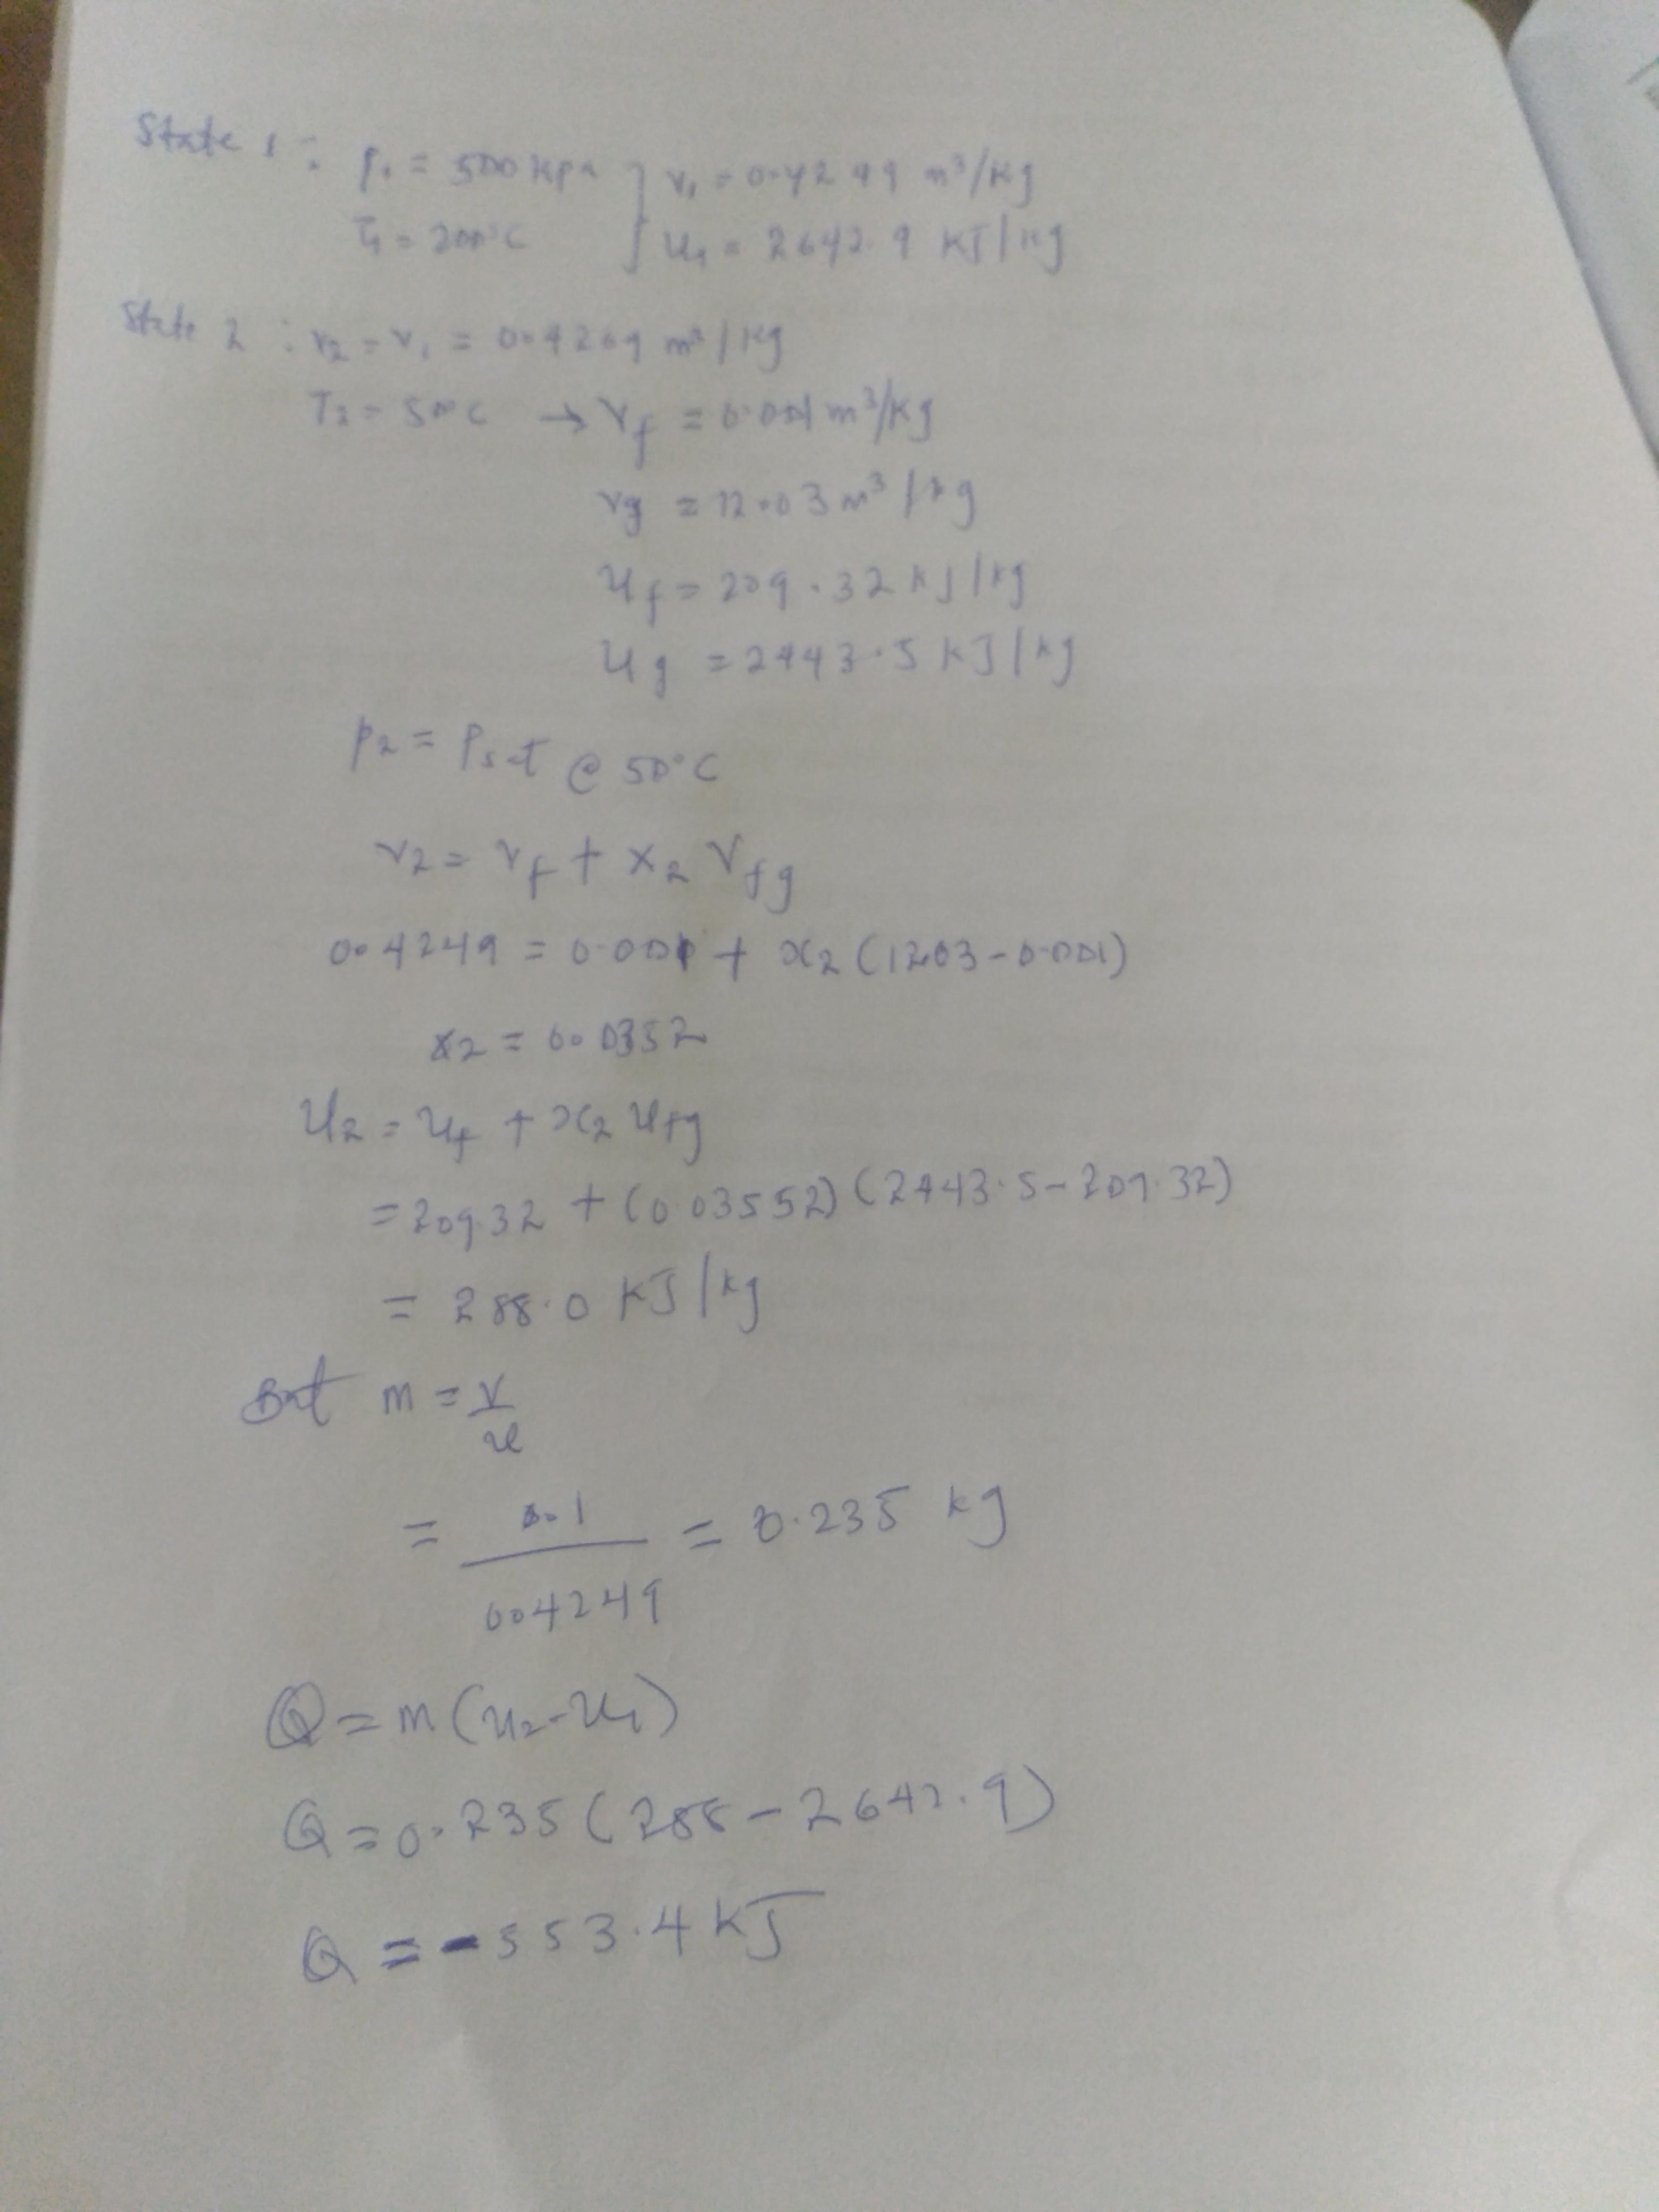 State 1 : P₁ = 500 kPa } v₁ = 0.4249 m³/kg
T₁ = 200°C } u₁ = 2642.9 KJ/kg
State 2 : v₂ = v₁ = 0.4249 m³/kg
T₂ = 50°C → vf = 0.001 m³/kg
vg = 12.03 m³/kg
uf = 209.32 kJ/kg
ug = 2443.5 kJ/kg
P₂ = Psat @ 50°C
v₂ = vf + x₂ vfg
0.4249 = 0.001 + x₂ (12.03 - 0.001)
x₂ = 0.0352
u₂ = uf + x₂ ufg
= 209.32 + (0.03552) (2443.5 - 209.32)
= 288.0 KJ/kg
But m = v
u
= 0.1 = 0.235 kg
0.4249
Q = m (u₂ - u₁)
Q = 0.235 (288 - 2642.9)
Q = -553.4 kJ